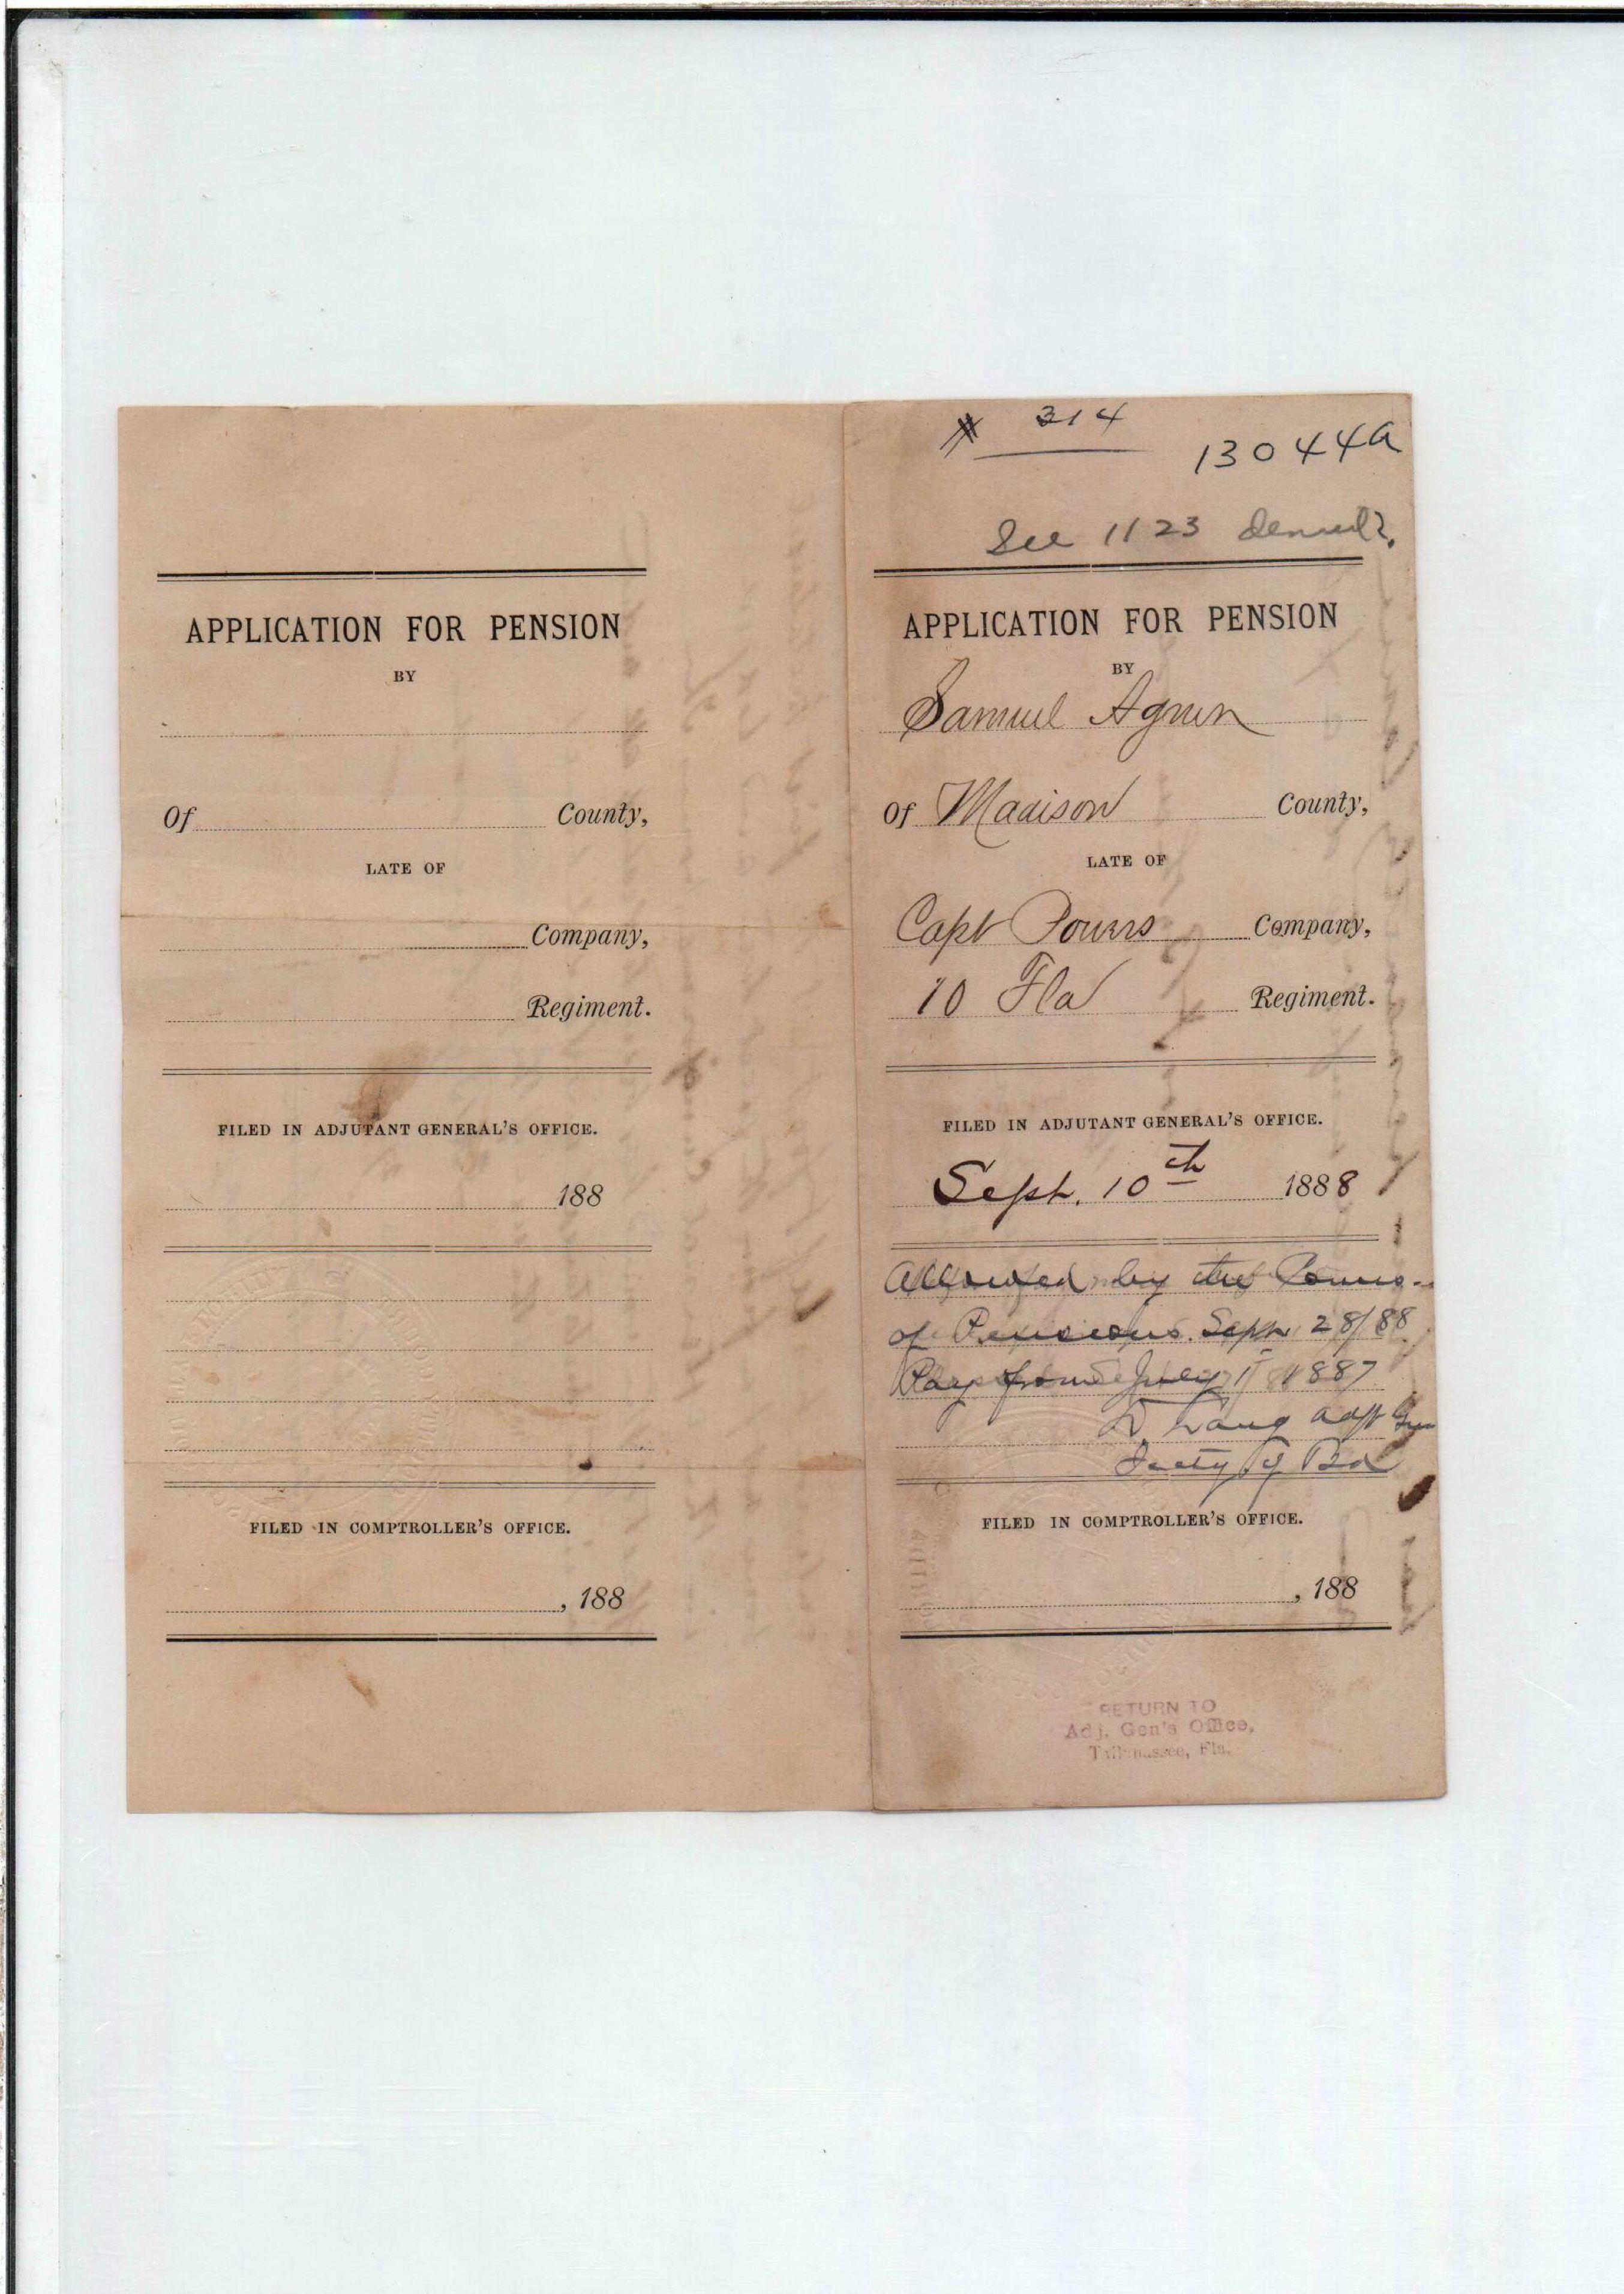 APPLICATION FOR PENSION
BY
Of County,
LATE OF
Company,
Regiment.
FILED IN ADJUTANT GENERAL'S OFFICE.
188
FILED IN COMPTROLLER'S OFFICE.
, 188
# 314
13044a
See 1123 denied?
APPLICATION FOR PENSION
BY
Samuel Agner
Of Madison County,
LATE OF
Capt Powers Company,
10 Fla Regiment.
FILED IN ADJUTANT GENERAL'S OFFICE.
Sept. 10th 1888
Allowed by the
of Pensions. Sept 28/88
Pay from July 1st 1887
D. Lang Adjt Gen
Secty of Bd
FILED IN COMPTROLLER'S OFFICE.
, 188
RETURN TO
Adj. Gen's Office,
Tallahassee, Fla.